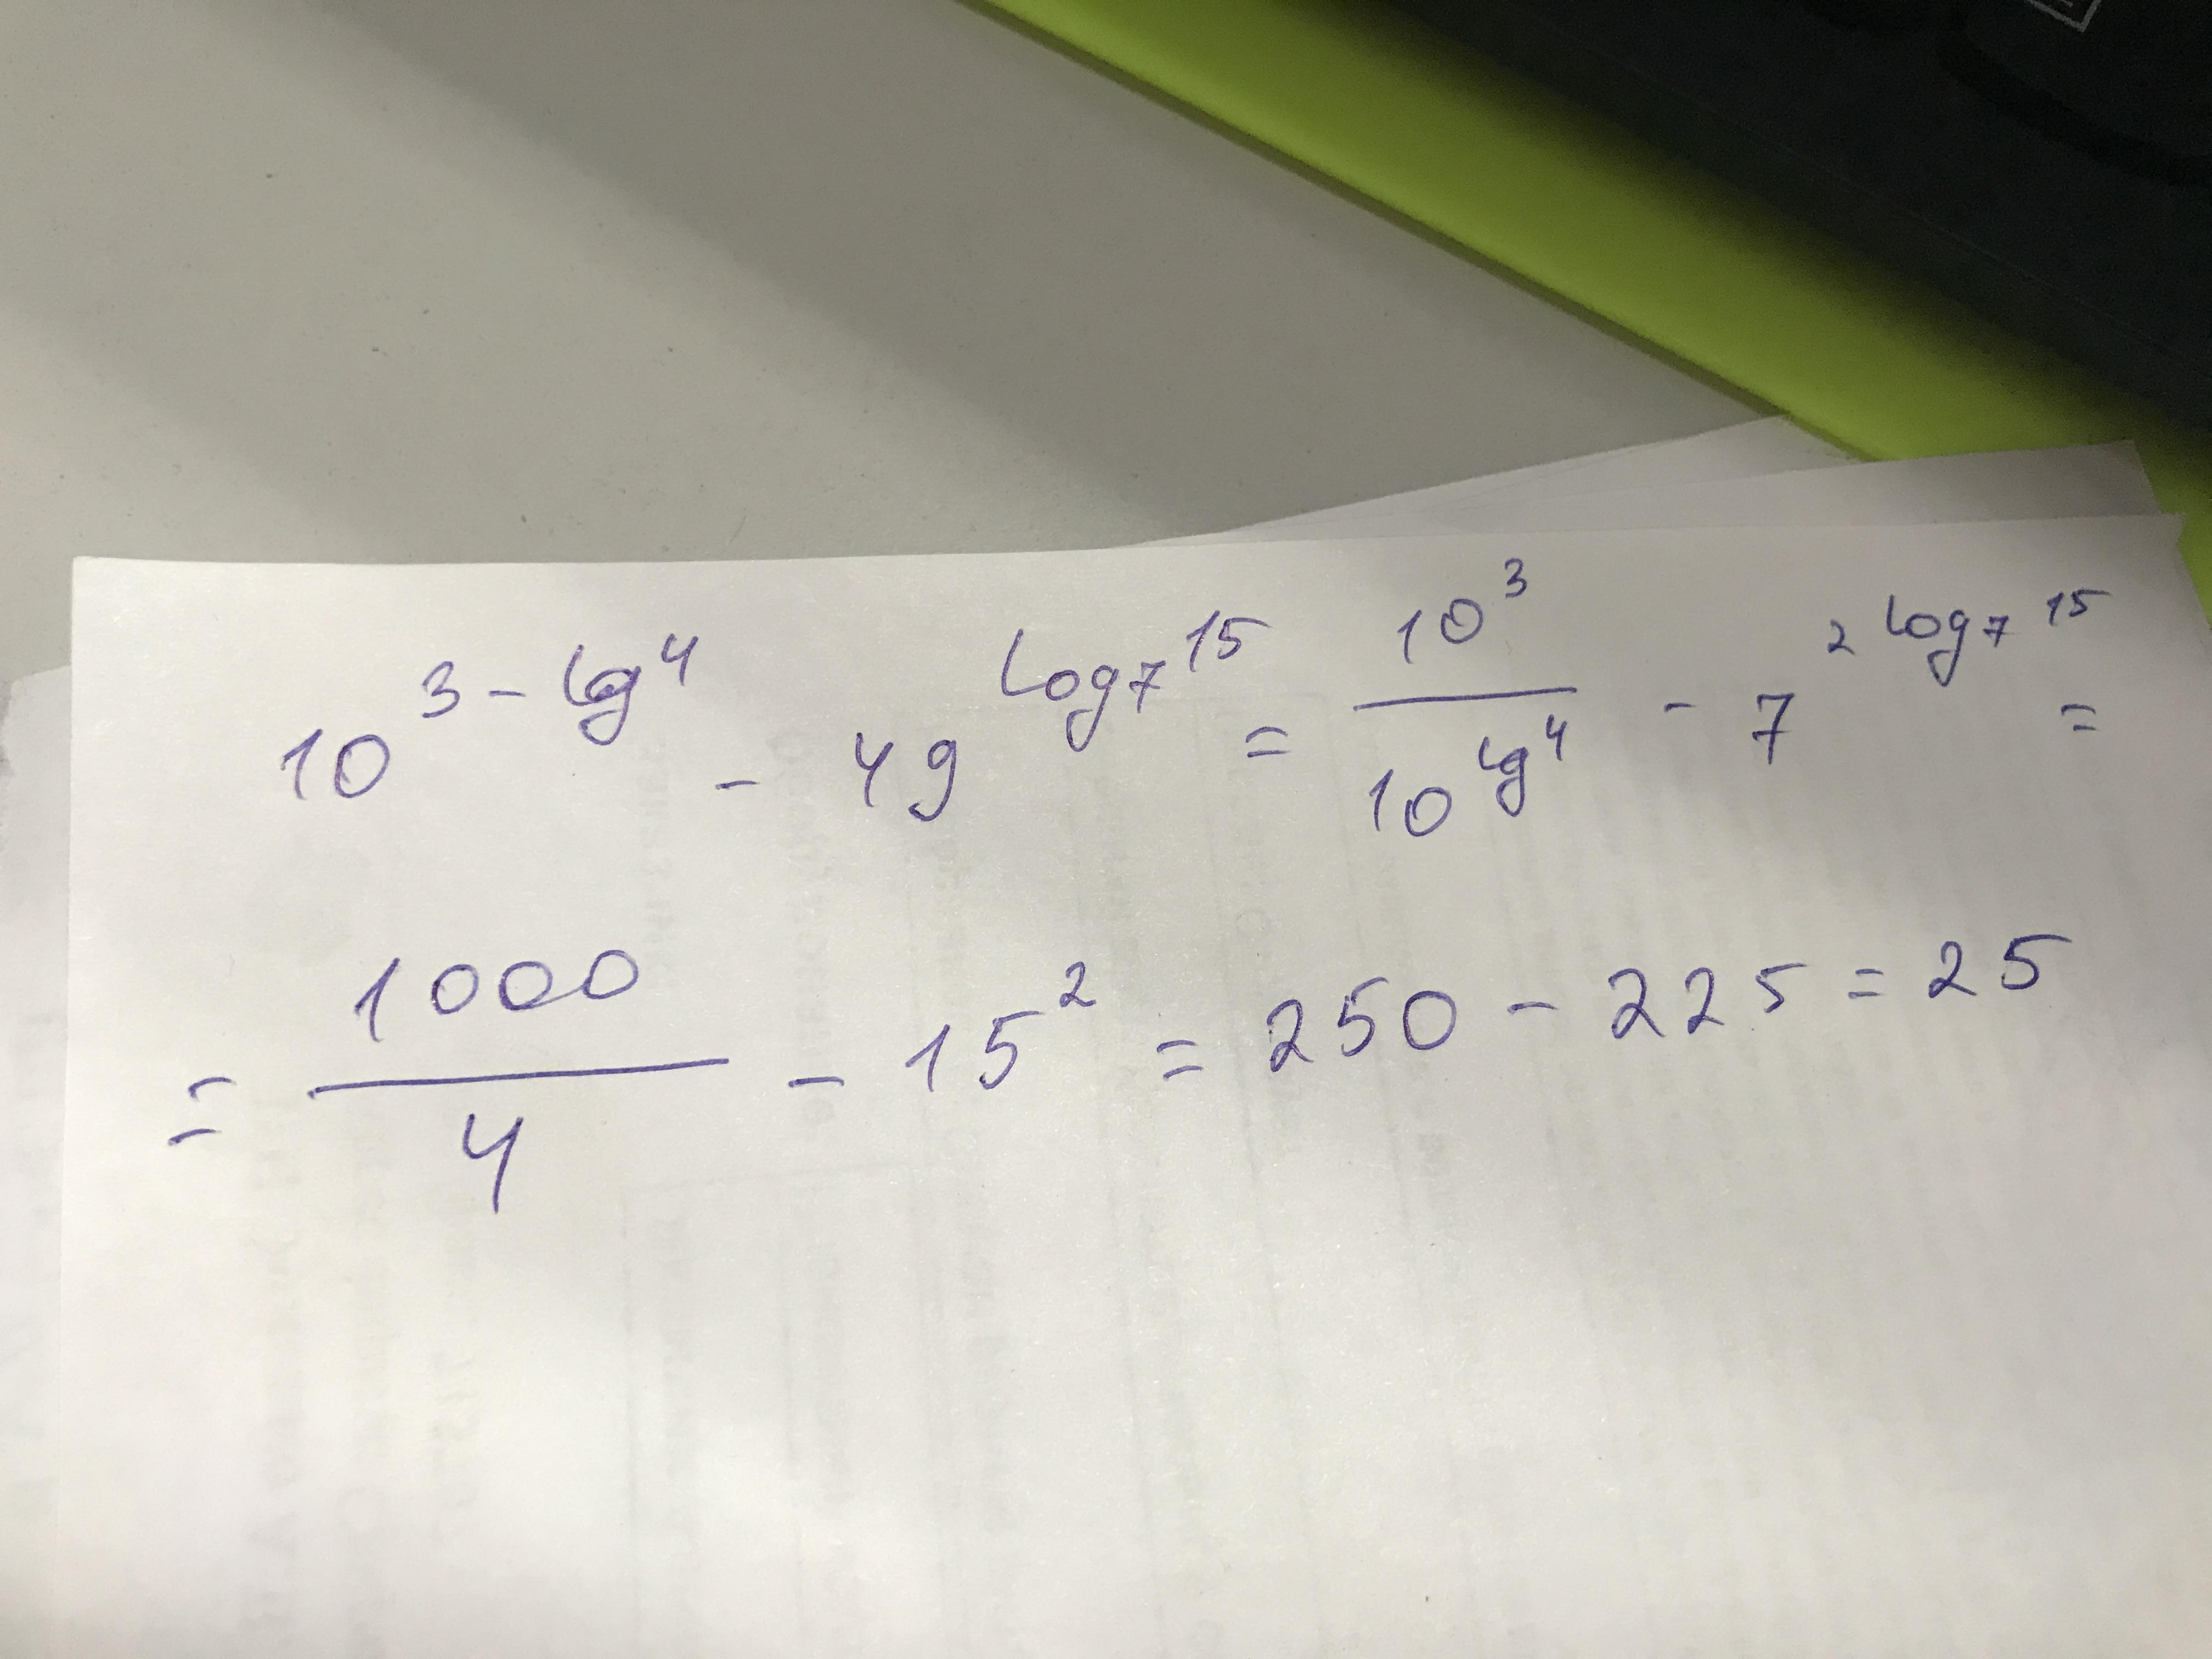 10^{3 - lg 4} - 49^{log_7 15} = \frac{10^3}{10^{lg 4}} - 7^{2 log_7 15} =
= \frac{1000}{4} - 15^2 = 250 - 225 = 25